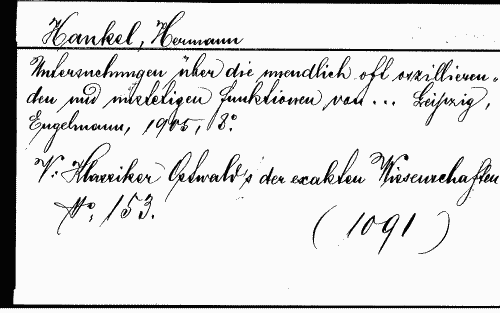 Hankel, Hermann
Untersuchungen über die unendlich oft oszillieren-
den und unstetigen Funktionen von ... Leipzig,
Engelmann, 1905, 8º.
V: Klassiker Ostwald's der exakten Wissenschaften
Nº, 153.
(1091)